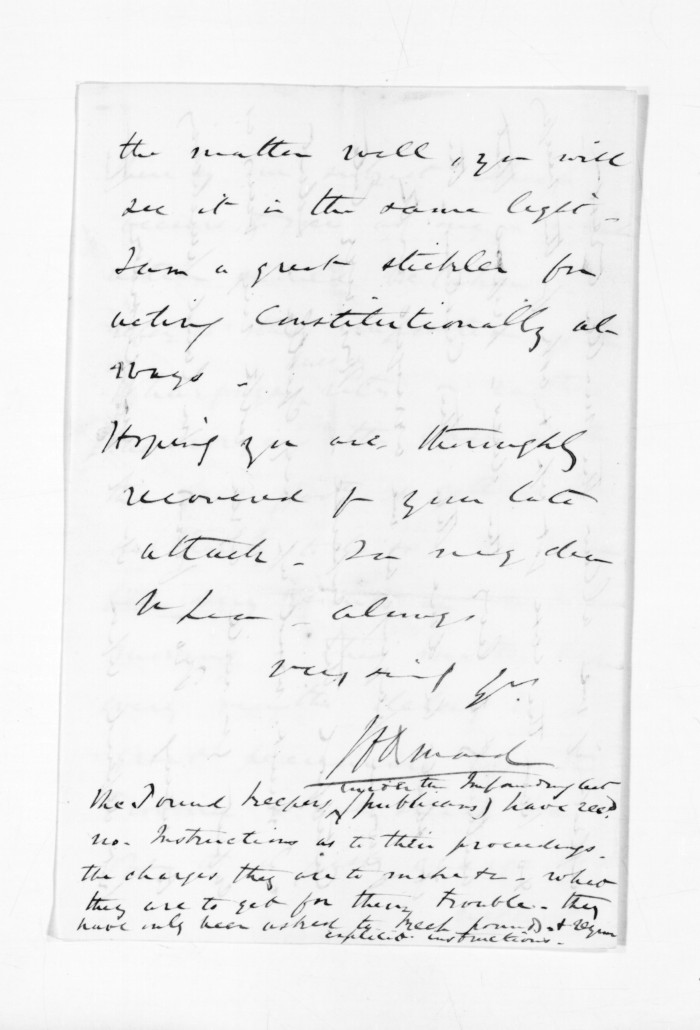 the matter well, you will
see it in the same light -
I am a great stickler for
acting Constitutionally al
ways -
Hoping you are thoroughly
recovered fr your late
attack - I am my dear
McLean - always
very sincy Yrs
under the Impounding Act
the Pound keepers (publicans) have recd.
no - Instructions as to their proceedings -
the charges they are to make &c - what
they are to get for their trouble - they
have only been asked to keep pounds - & require
explicit instructions -